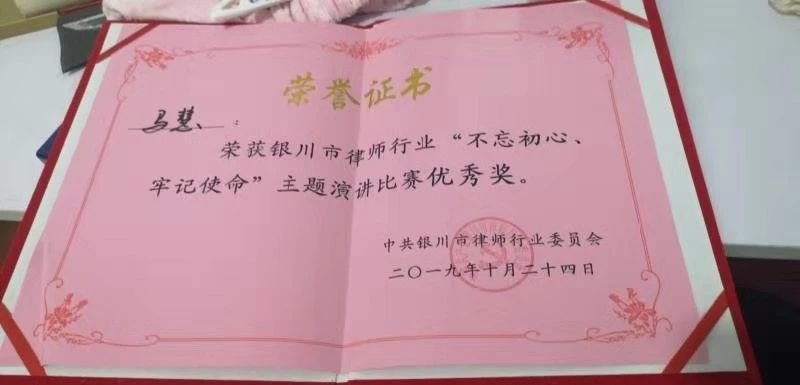 荣誉证书
马慧：
荣获银川市律师行业“不忘初心、
牢记使命”主题演讲比赛优秀奖。
中共银川市律师行业委员会
二〇一九年十月二十四日